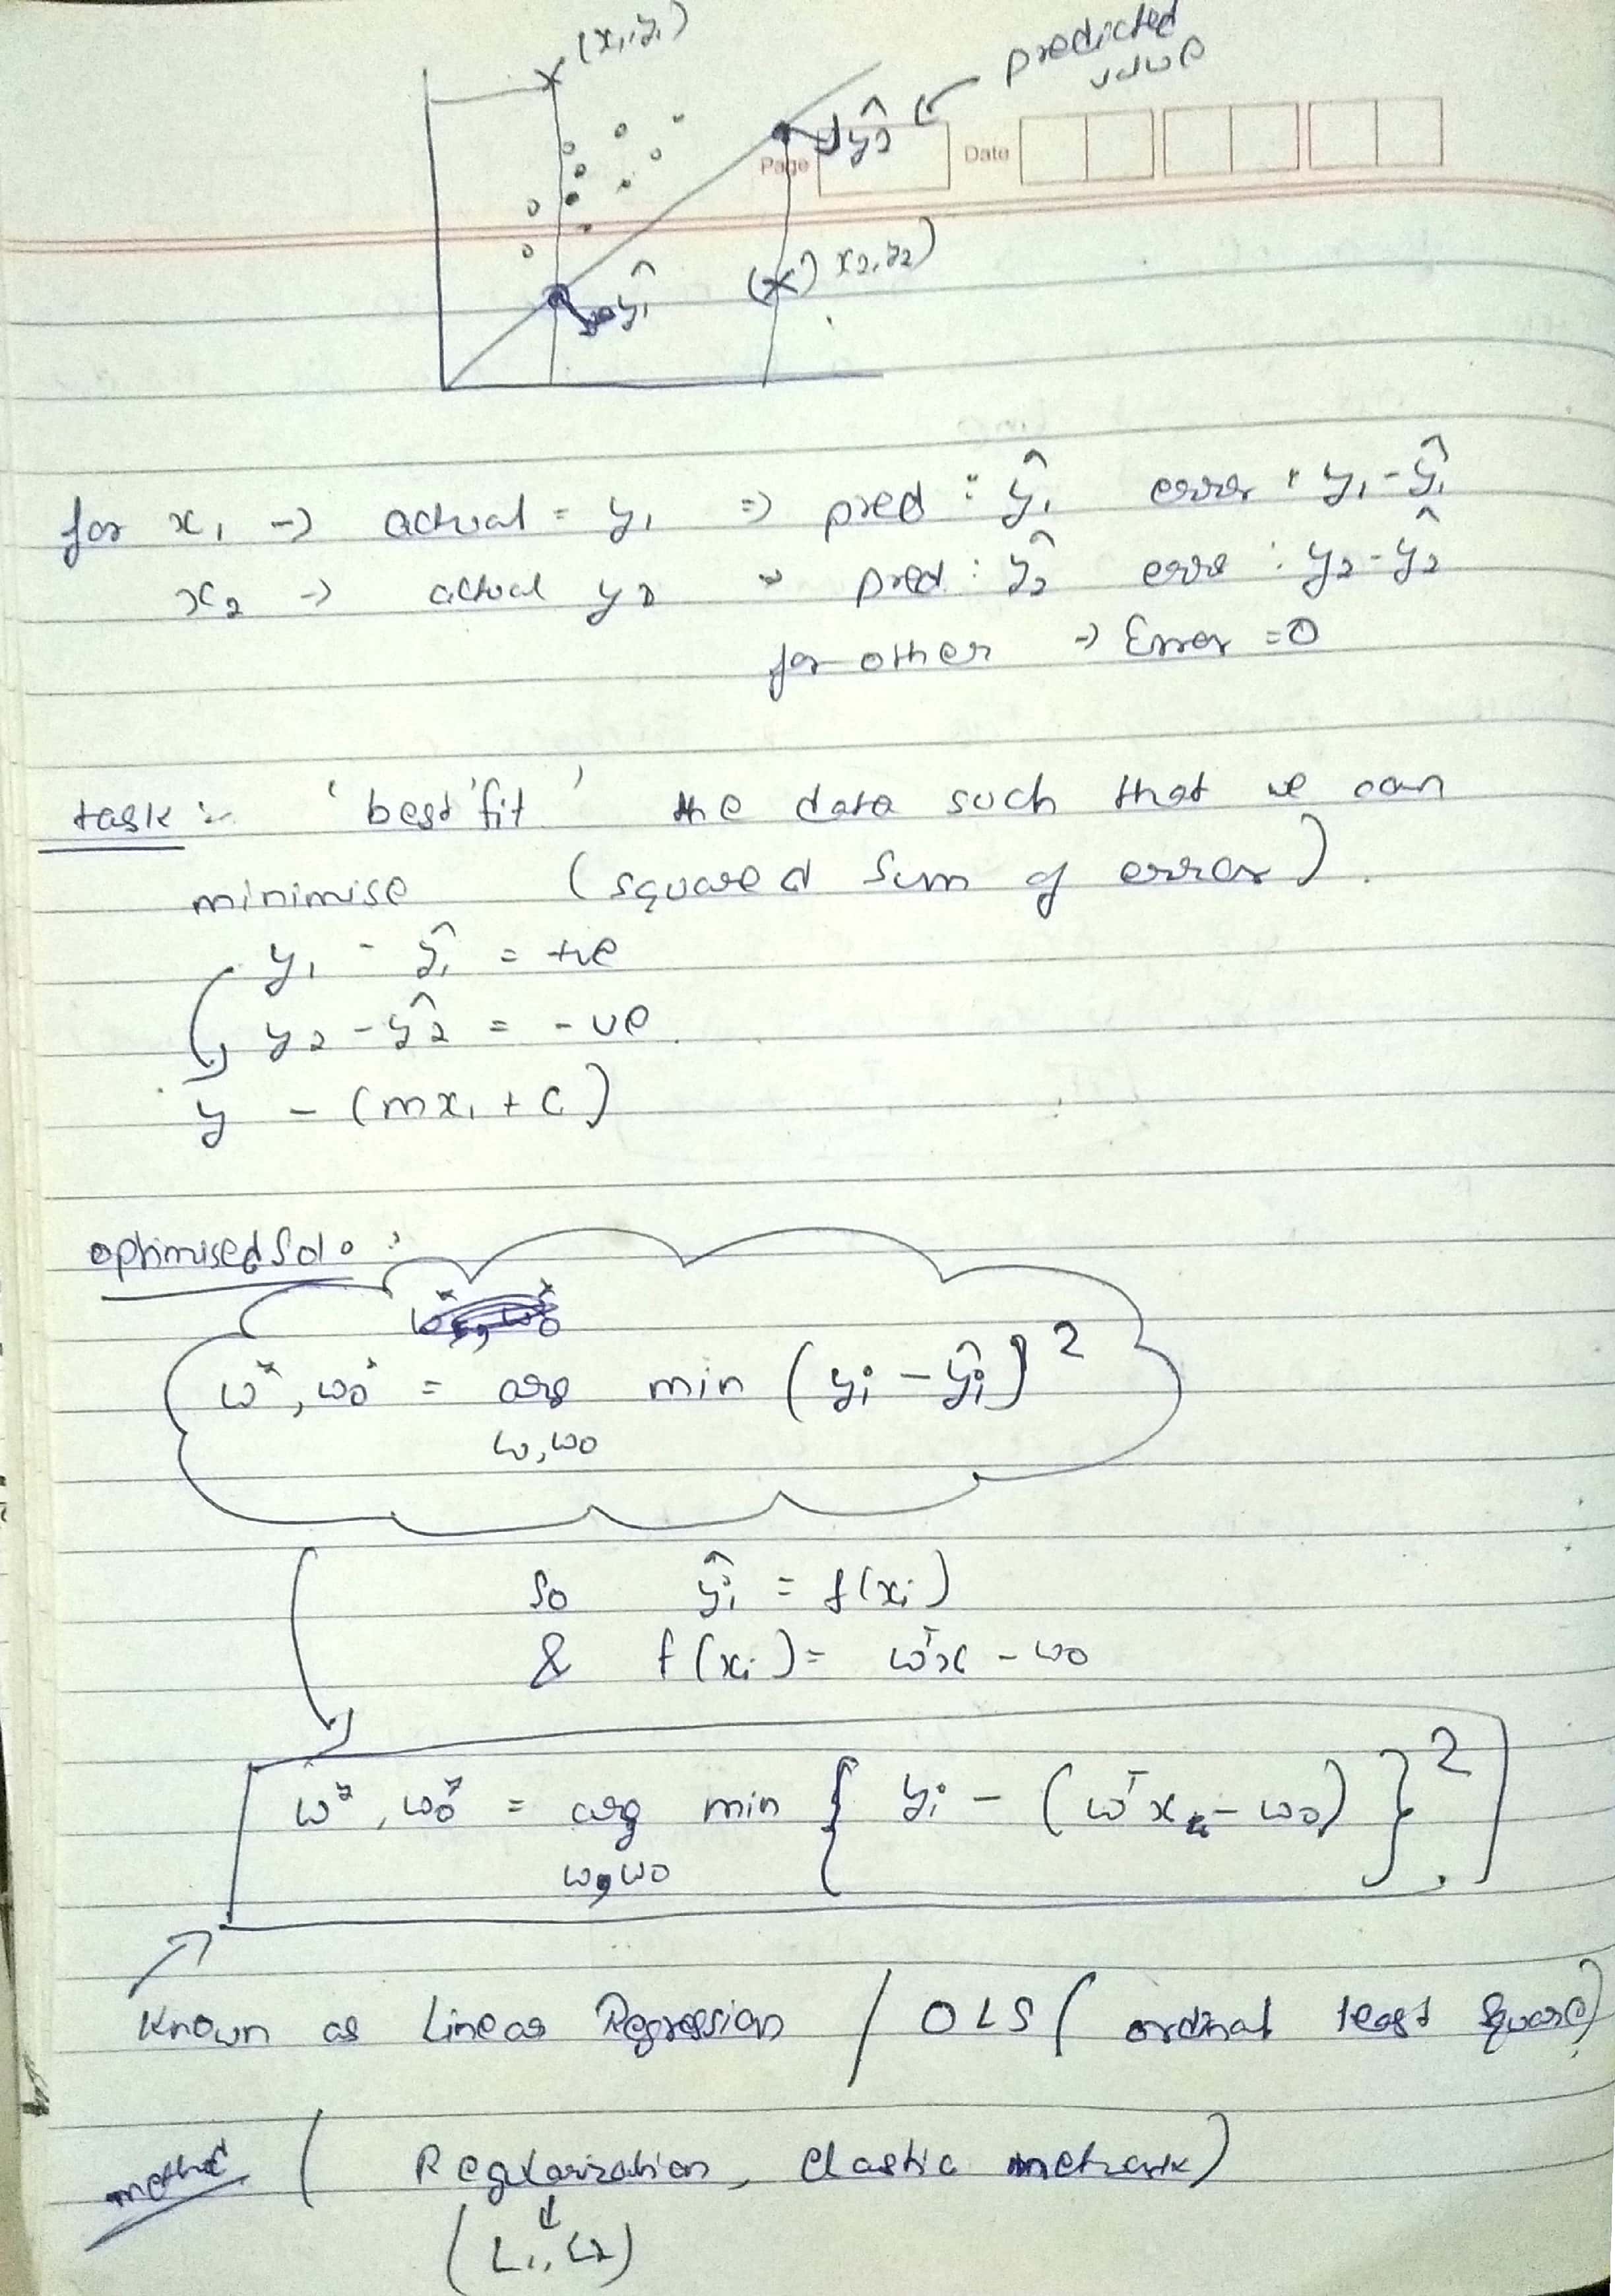 (x₁,y₁)
predicted
value
ŷ₂
Page
Date
(x₂,y₂)
ŷ₁
for x₁ -> actual = y₁ => pred : ŷ₁ error : y₁ - ŷ₁
x₂ -> actual y₂ pred : ŷ₂ error : y₂ - ŷ₂
for other => Error = 0
task :- 'best fit' the data such that we can
minimise (squared sum of error).
y₁ - ŷ₁ = +ve
y₂ - ŷ₂ = -ve.
y - (mx₁ + c)
optimised Solⁿ :
w*, w₀* = arg min (yᵢ - ŷᵢ)²
w, w₀
So ŷᵢ = f(xᵢ)
& f(xᵢ) = wᵀx - w₀
w*, w₀* = arg min { yᵢ - (wᵀxᵢ - w₀) }²
w, w₀
Known as Linear Regression / OLS ( ordinal least square)
method ( Regularization, elastic )
(L₁, L₂)